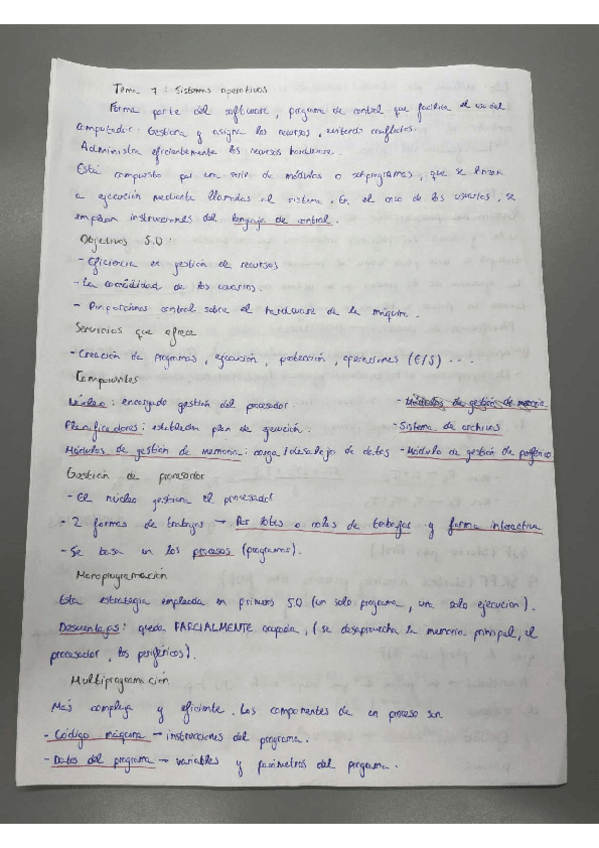 Tema 7: Sistemas operativos
Forma parte del software, programa de control que facilita el uso del
computador. Gestiona y asigna los recursos, evitando conflictos.
Administra eficientemente los recursos hardware.
Está compuesto por un serie de módulos o subprogramas, que se lanzan
a ejecución mediante llamadas al sistema. En el caso de los usuarios, se
emplean instrucciones del lenguaje de control.
Objetivos S.O:
- Eficiencia en gestión de recursos
- La comodidad de los usuarios.
- Proporcionar control sobre el hardware de la máquina.
Servicios que ofrece
- Creación de programas, ejecución, protección, operaciones (E/S) ...
Componentes
Núcleo: encargado gestión del procesador. - Módulos de gestión de
Planificadores: establecen plan de ejecución. - Sistema de archivos
Módulos de gestión de memoria: carga/desalojo de datos - Módulo de gestión de periférico
Gestión de procesador
- El núcleo gestiona el procesador
- 2 formas de trabajos → Por lotes o colas de trabajos y forma interactiva
- Se basa en los procesos (programas).
Monoprogramación
Esta estrategia empleada en primeros S.O (un solo programa, una sola ejecución).
Desventajas: queda PARCIALMENTE ocupada, (se desaprovecha la memoria principal, el
procesador, los periféricos).
Multiprogramación
Más compleja y eficiente. Los componentes de un proceso son
- Código máquina → instrucciones del programa.
- Datos del programa → variables y parámetros del programa.